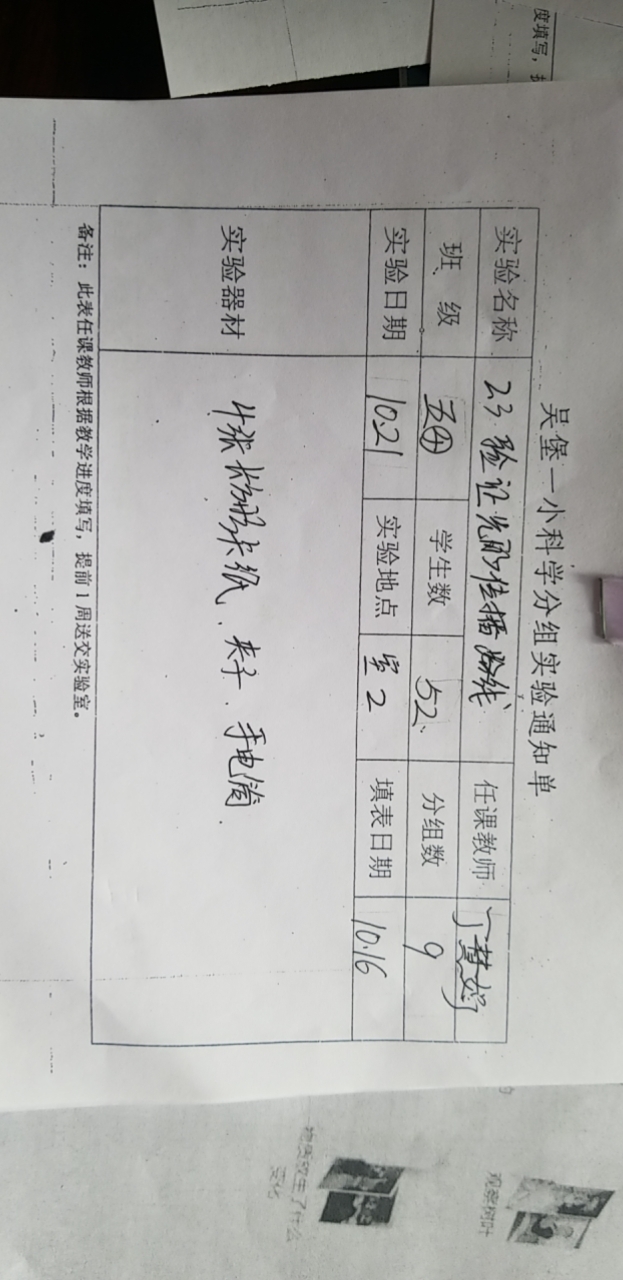 度填写，
吴堡一小科学分组实验通知单
实验名称 2.3 验证光的传播路线 任课教师
班 级 五④ 学生数 52 分组数 9
实验日期 10.21 实验地点 室2 填表日期 10.16
实验器材 4张长方形卡纸、夹子、手电筒.
备注：此表任课教师根据教学进度填写，提前1周送交实验室。
观察树叶
物质发生了什么
变化